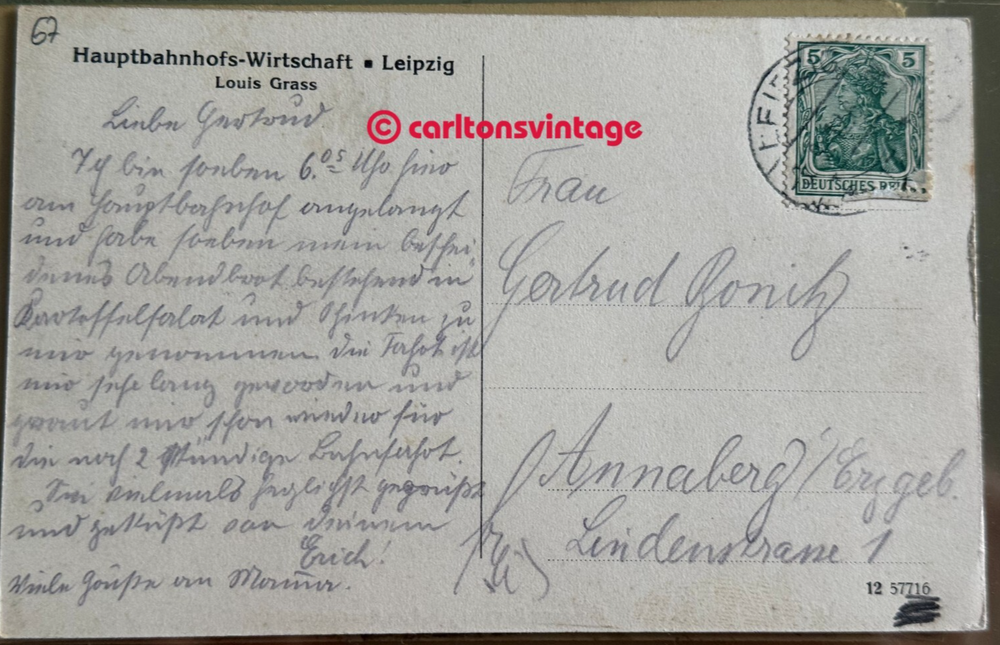 67
Hauptbahnhofs-Wirtschaft ▪ Leipzig
Louis Grass
© carltonsvintage
5 5
DEUTSCHES REICH
Liebe Gertrud
Ich bin soeben 6.05 Uhr hier
am Hauptbahnhof angelangt
und habe soeben mein beschei-
denes Abendbrot bestehend in
Kartoffelsalat und Schinken zu
mir genommen. Die Fahrt ist
mir sehr lang geworden und
graut mir schon wieder für
die noch 2 stündige Bahnfahrt.
Sei vielmals herzlichst gegrüßt
und geküßt von Deinem
Erich!
Viele Grüße an Mama.
Frau
Gertrud Bonitz
Annaberg/Erzgeb.
Lindenstrasse 1
12 57716